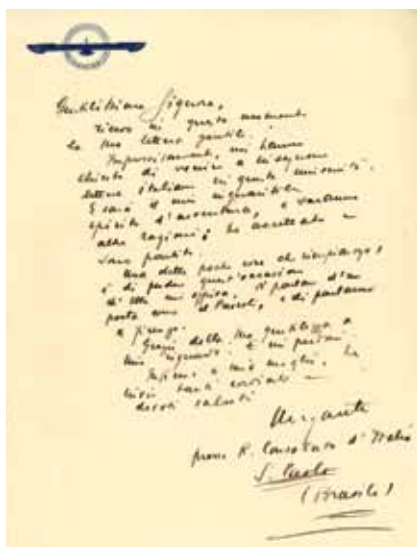 Gentilissima Signora,
ricevo in questo momento
la sua lettera gentile.
Improvvisamente, mi hanno
chiesto di venire a insegnare
lettere italiane in questa università.
E sarà il mio inguaribile
spirito d'avventura, e saranno
altre ragioni; ho accettato e
sono partito.
Una delle poche cose che rimpiango,
è di perdere quest'occasione
d'
poeta come il Pascoli, e di parlarne
a Firenze.
Grazie della sua gentilezza a
mio riguardo. E mi perdoni.
Insieme a mia moglie, le
invio tanti cordiali e
devoti saluti
Ungaretti
presso R. Consolato d'Italia
S. Paolo
(Brasile)